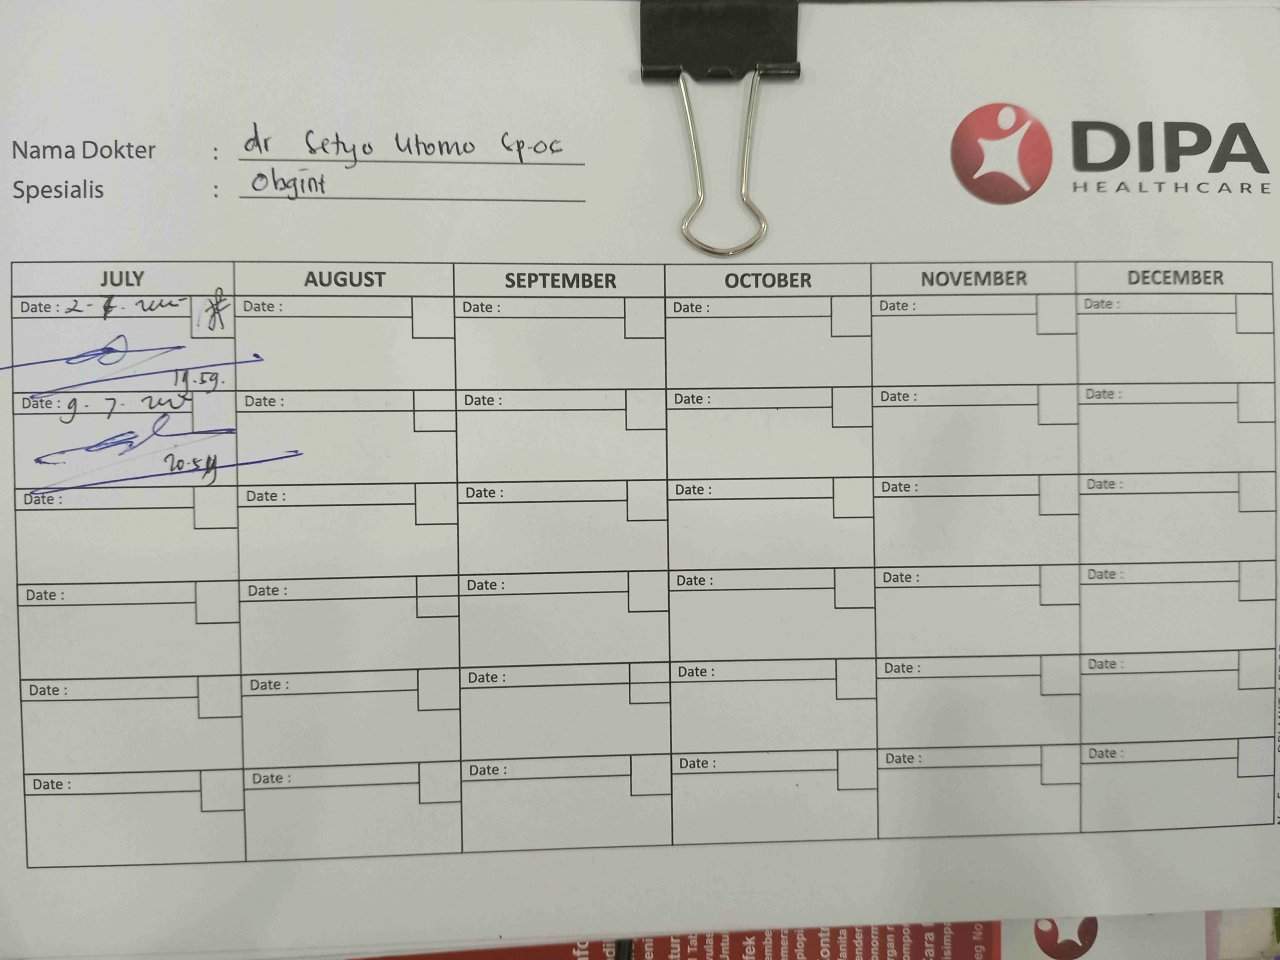 Nama Dokter : dr Setyo Utomo Sp.OG
Spesialis : Obgint
DIPA
HEALTHCARE
JULY AUGUST SEPTEMBER OCTOBER NOVEMBER DECEMBER
Date : 2-7- Date : Date : Date : Date : Date :
19.59.
Date : 9-7- Date : Date : Date : Date : Date :
20.54
Date : Date : Date : Date : Date : Date :
Date : Date : Date : Date : Date : Date :
Date : Date : Date : Date : Date : Date :
Date : Date : Date : Date : Date : Date :